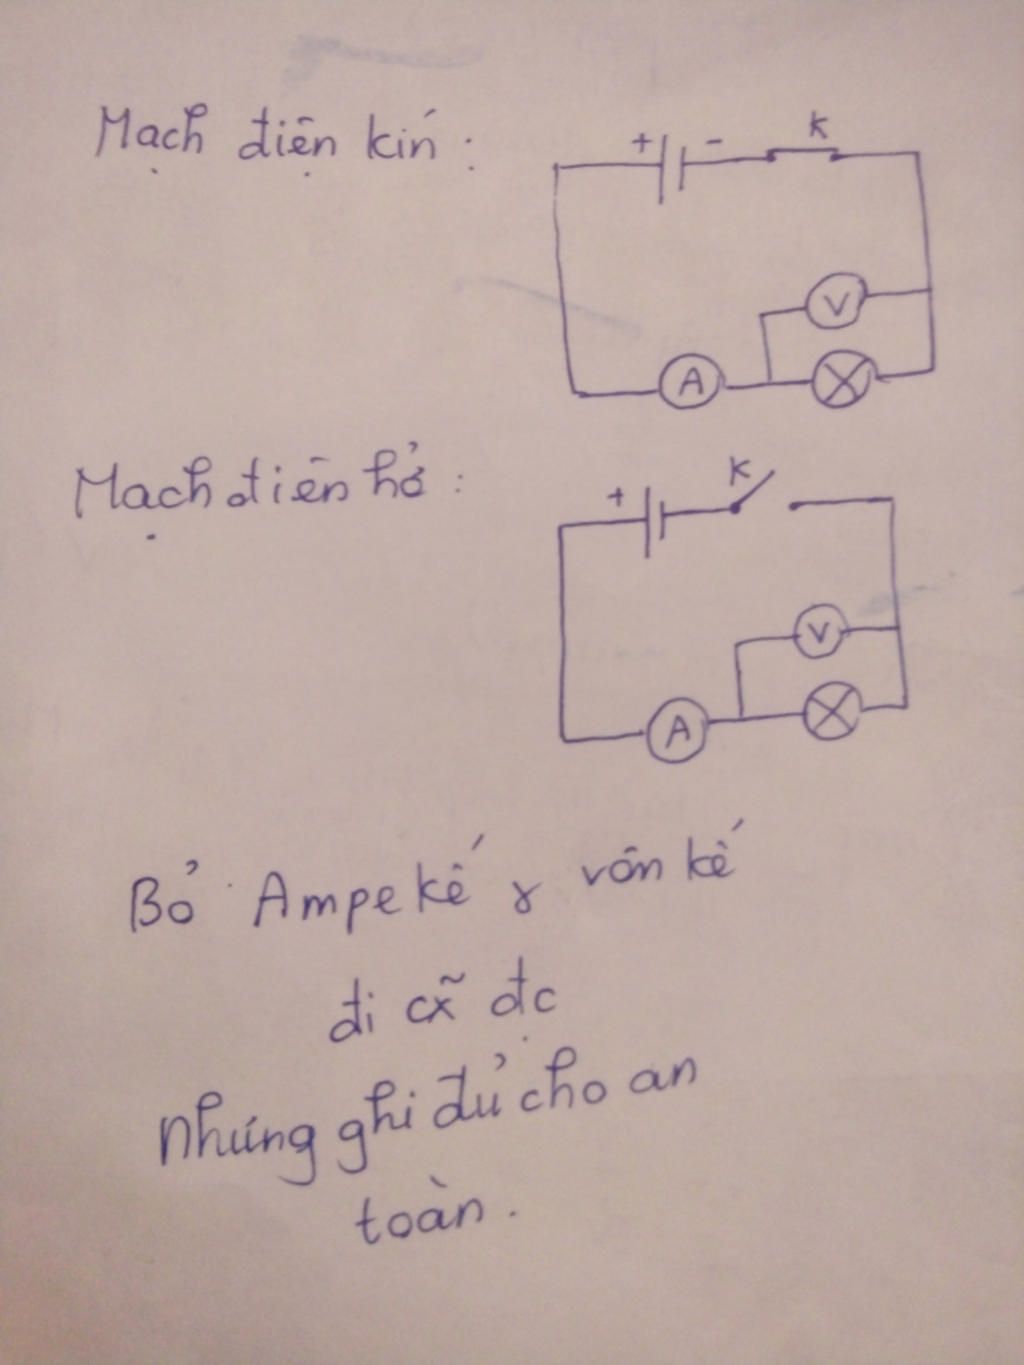 Mạch điện kín :
+ - K
V
A
Mạch điện hở :
+ K
V
A
Bỏ Ampe kế & vôn kế
đi cx̃ đc
Nhưng ghi đủ cho an
toàn.